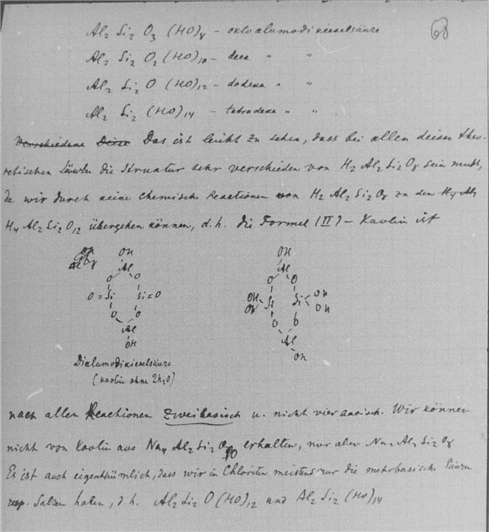 68
Al2 Si2 O3 (HO)8 – oktoalumodikieselsäure
Al2 Si2 O2 (HO)10 – deca " "
Al2 Si2 O (HO)12 – dodeca " "
Al2 Si2 (HO)14 – tetradeca " "
Verschiedene Diese Das ist leicht zu sehen, dass bei allen diesen theo-
retischen Säuren die Struktur sehr verschieden von H2 Al2 Si2 O8 sein muss,
da wir durch keine chemische Reactionen von H2 Al2 Si2 O8 zu den H4 Al2
H4 Al2 Si2 O12 übergehen können, d.h. die Formel (II) – Kaolin ist
OH
Al
O O
O=Si Si=O
O O
Al
OH
OH
Al
O O
OH Si Si OH
OH OH
O O
Al
OH
Dialumodikieselsäure
(Kaolin ohne 2H2O)
nach allen Reactionen zweibasisch u. nicht vierbasisch. Wir können
nicht von Kaolin aus Na4 Al2 Si2 O10 erhalten, nur aber Na2 Al2 Si2 O8
Es ist auch eigenthümlich, dass wir in Chloriten meistens nur die mehrbasische Säuren
resp. Salzen haben, d.h. Al2 Si2 O (HO)12 und Al2 Si2 (HO)14